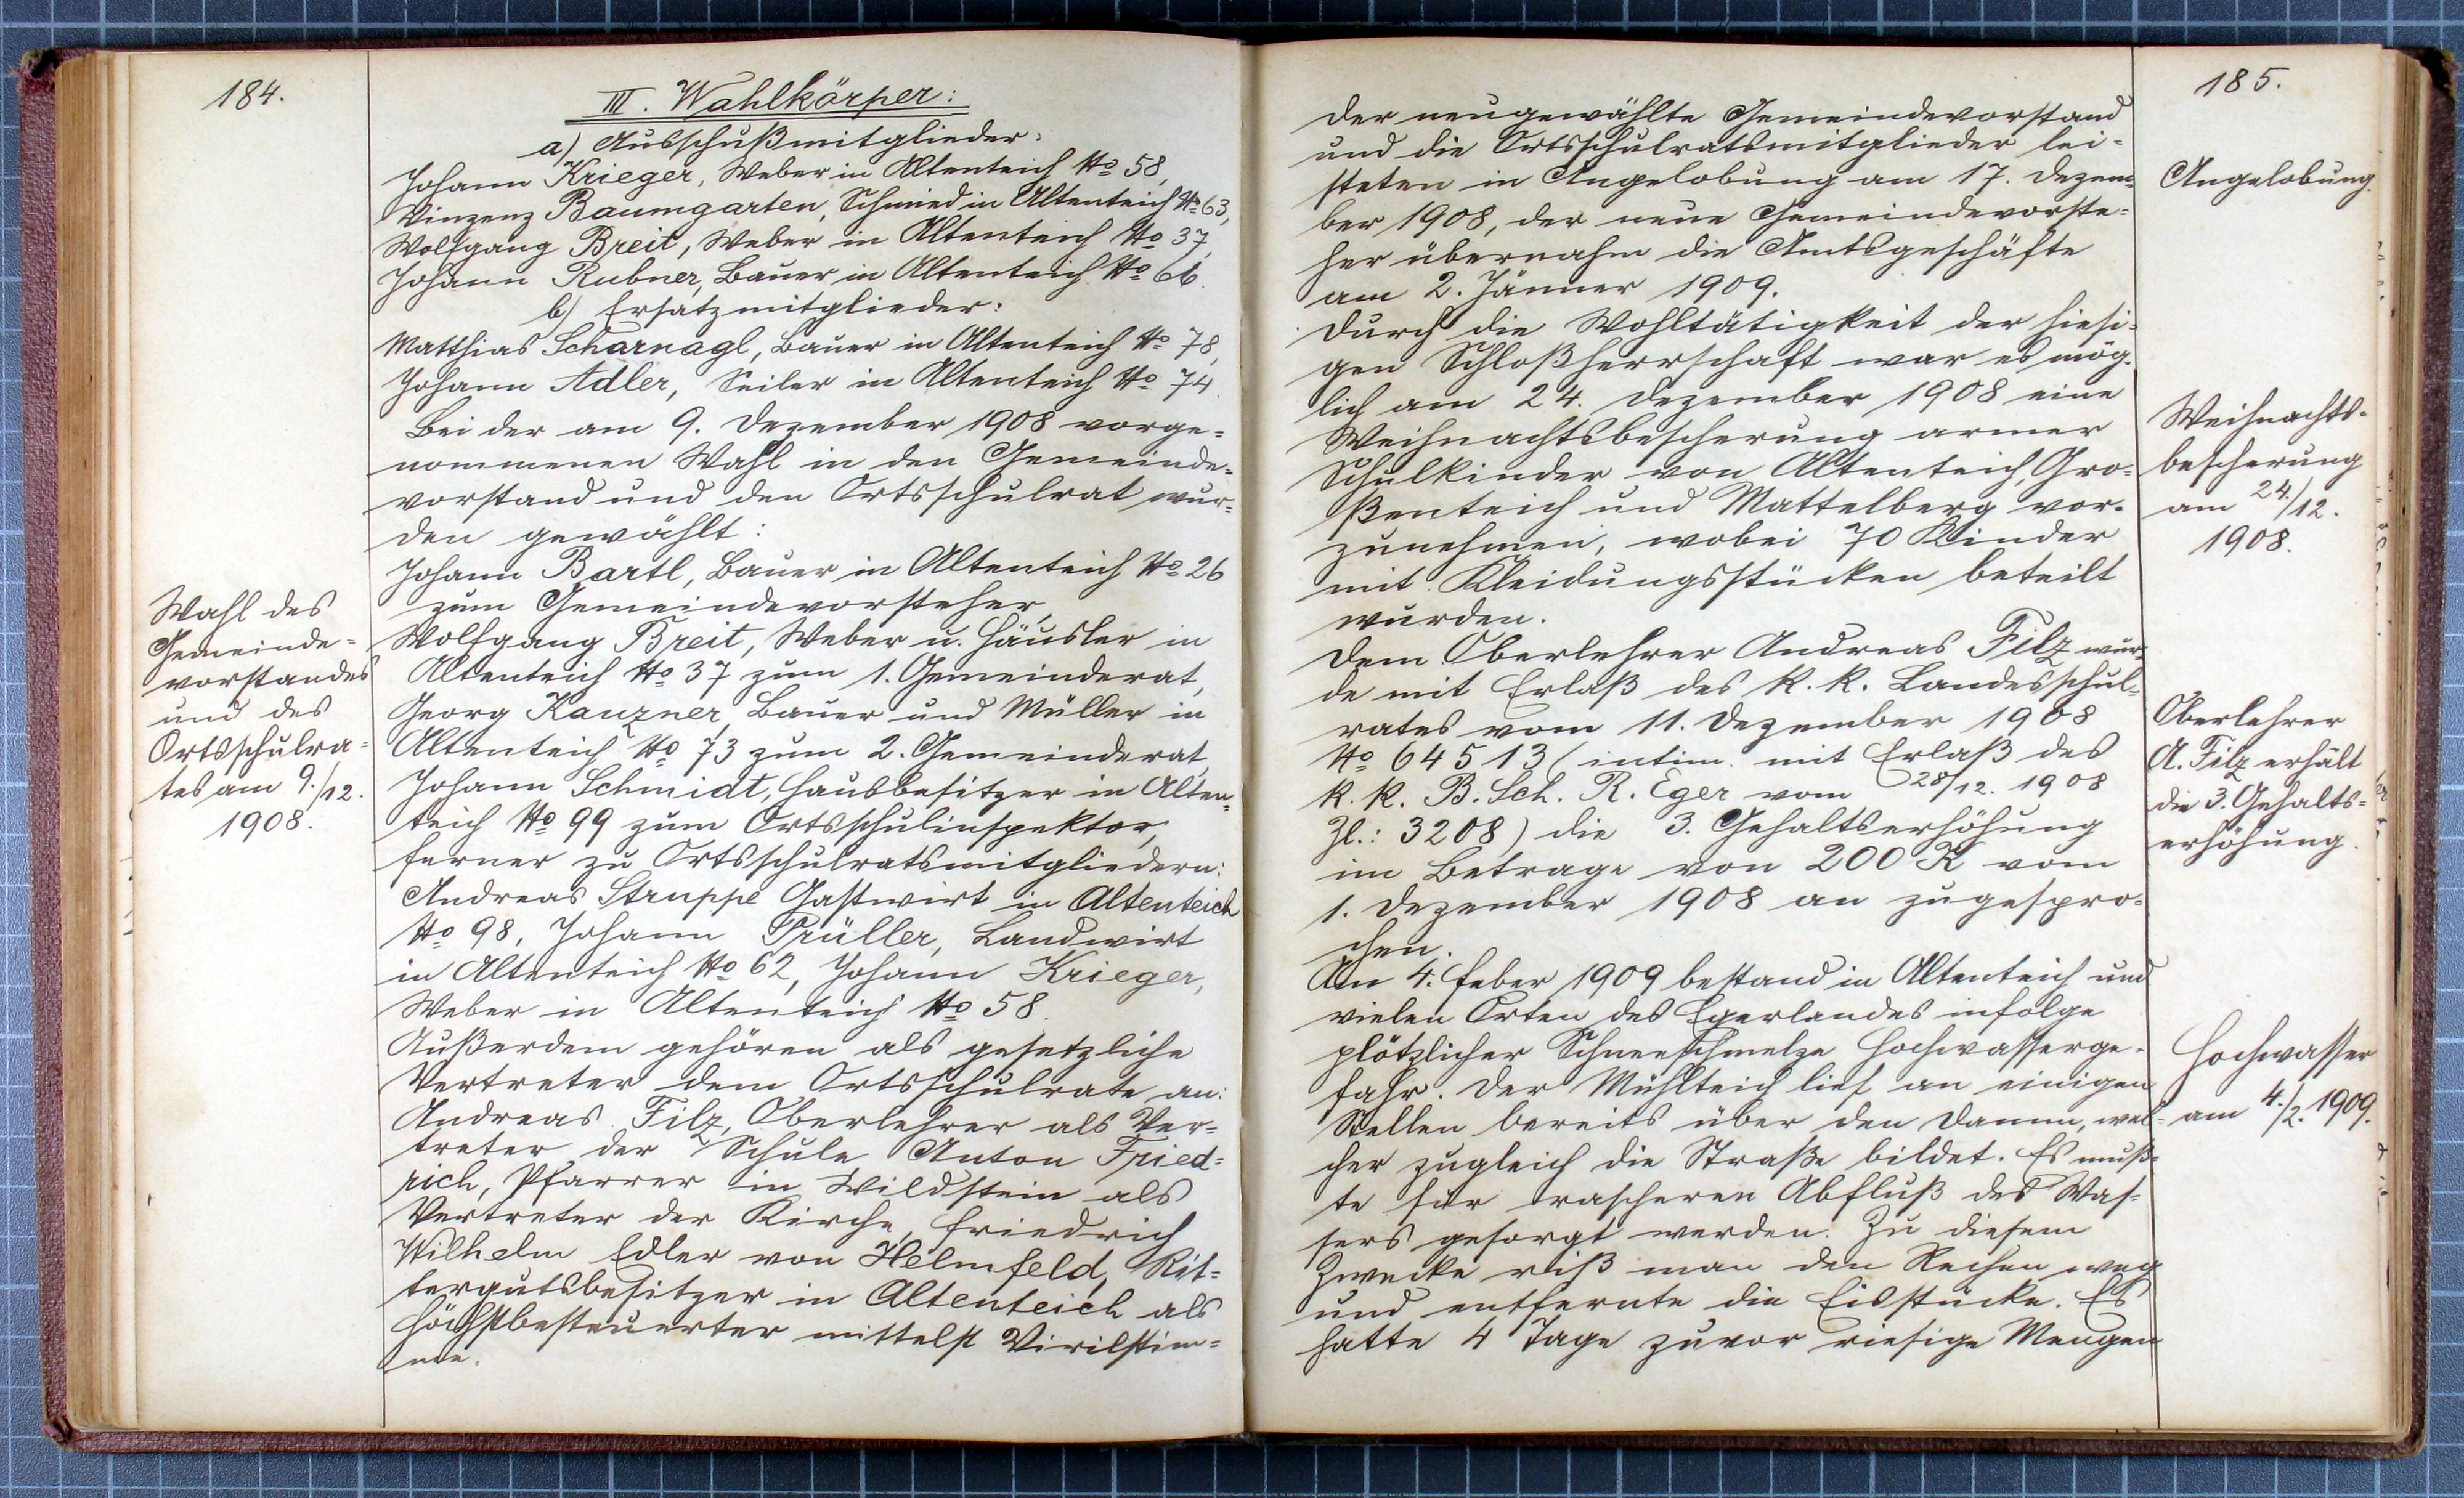 184.
III. Wahlkörper:
a) Ausschußmitglieder:
Johann Krieger, Weber in Altenteich No 58,
Vinzenz Baumgarten, Schmied in Altenteich No 63,
Wolfgang Breit, Weber in Altenteich No 37,
Johann Rubner, Bauer in Altenteich No 66.
b) Ersatzmitglieder:
Matthias Scharnagl, Bauer in Altenteich No 78,
Johann Adler, Seiler in Altenteich No 74.
Bei der am 9. Dezember 1908 vorge-
nommenen Wahl in den Gemeinde-
vorstand und den Ortsschulrat wur-
den gewählt:
Johann Bartl, Bauer in Altenteich No 26
zum Gemeindevorsteher,
Wolfgang Breit, Weber u. Häusler in
Altenteich No 37 zum 1. Gemeinderat,
Georg Kauzner, Bauer und Müller in
Altenteich No 73 zum 2. Gemeinderat,
Johann Schmidt, Hausbesitzer in Alten-
teich No 99 zum Ortsschulinspektor,
ferner zu Ortsschulratsmitgliedern:
Andreas Struppe Gastwirt in Altenteich
No 98, Johann Prüller, Landwirt
in Altenteich No 62, Johann Krieger,
Weber in Altenteich No 58.
Außerdem gehören als gesetzliche
Vertreter dem Ortsschulrate an:
Andreas Filz, Oberlehrer als Ver-
treter der Schule, Anton Fried-
rich, Pfarrer in Wildstein als
Vertreter der Kirche, Friedrich
Wilhelm Edler von Helmfeld, Rit-
tergutsbesitzer in Altenteich als
Höchstbesteuerter mittelst Virilstim-
me.
Wahl des
Gemeinde-
vorstandes
und des
Ortsschulra-
tes am 9./12.
1908.
185.
Der neugewählte Gemeindevorstand
und die Ortsschulratsmitglieder lei-
steten in Angelobung am 17. Dezem-
ber 1908, der neue Gemeindevorste-
her übernahm die Amtsgeschäfte
am 2. Jänner 1909.
Durch die Wohltätigkeit der hiesi-
gen Schloßherrschaft war es mög-
lich am 24. Dezember 1908 eine
Weihnachtsbescherung armer
Schulkinder von Altenteich, Gro-
ßenteich und Mattelberg vor-
zunehmen, wobei 70 Kinder
mit Kleidungsstücken beteilt
wurden.
Dem Oberlehrer Andreas Filz wur-
de mit Erlaß des k. k. Landesschul-
rates vom 11. Dezember 1908
No 64513 (intim. mit Erlaß des
k. k. B. Sch. R. Eger vom 28/12. 1908
Zl.: 3208) die 3. Gehaltserhöhung
im Betrage von 200 K vom
1. Dezember 1908 an zugespro-
chen.
Am 4. Feber 1909 bestand in Altenteich und
vielen Orten des Egerlandes infolge
plötzlicher Schneeschmelze Hochwasserge-
fahr. Der Mühlteich lief an einigen
Stellen bereits über den Damm, wel-
cher zugleich die Straße bildet. Es muß-
te für rascheren Abfluß des Was-
sers gesorgt werden. Zu diesem
Zwecke riß man den Rechen weg
und entfernte die Eisstücke. Es
hatte 4 Tage zuvor riesige Mengen
Angelobung.
Weihnachts-
bescherung
am 24./12.
1908.
Oberlehrer
A. Filz erhält
die 3. Gehalts-
erhöhung.
Hochwasser
am 4./2. 1909.